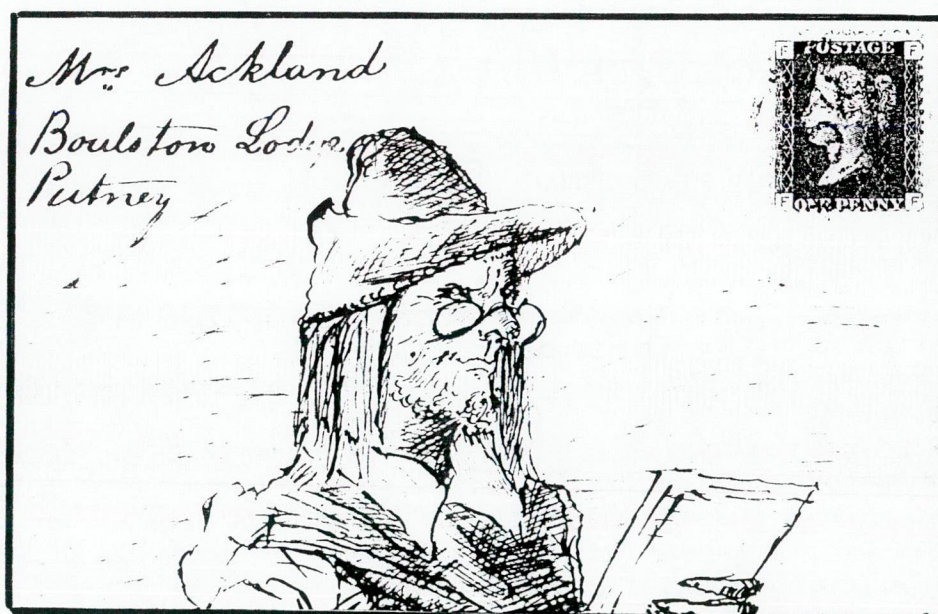 Mrs Ackland
Boulston Lodge
Putney
POSTAGE
F F
F F
ONE PENNY